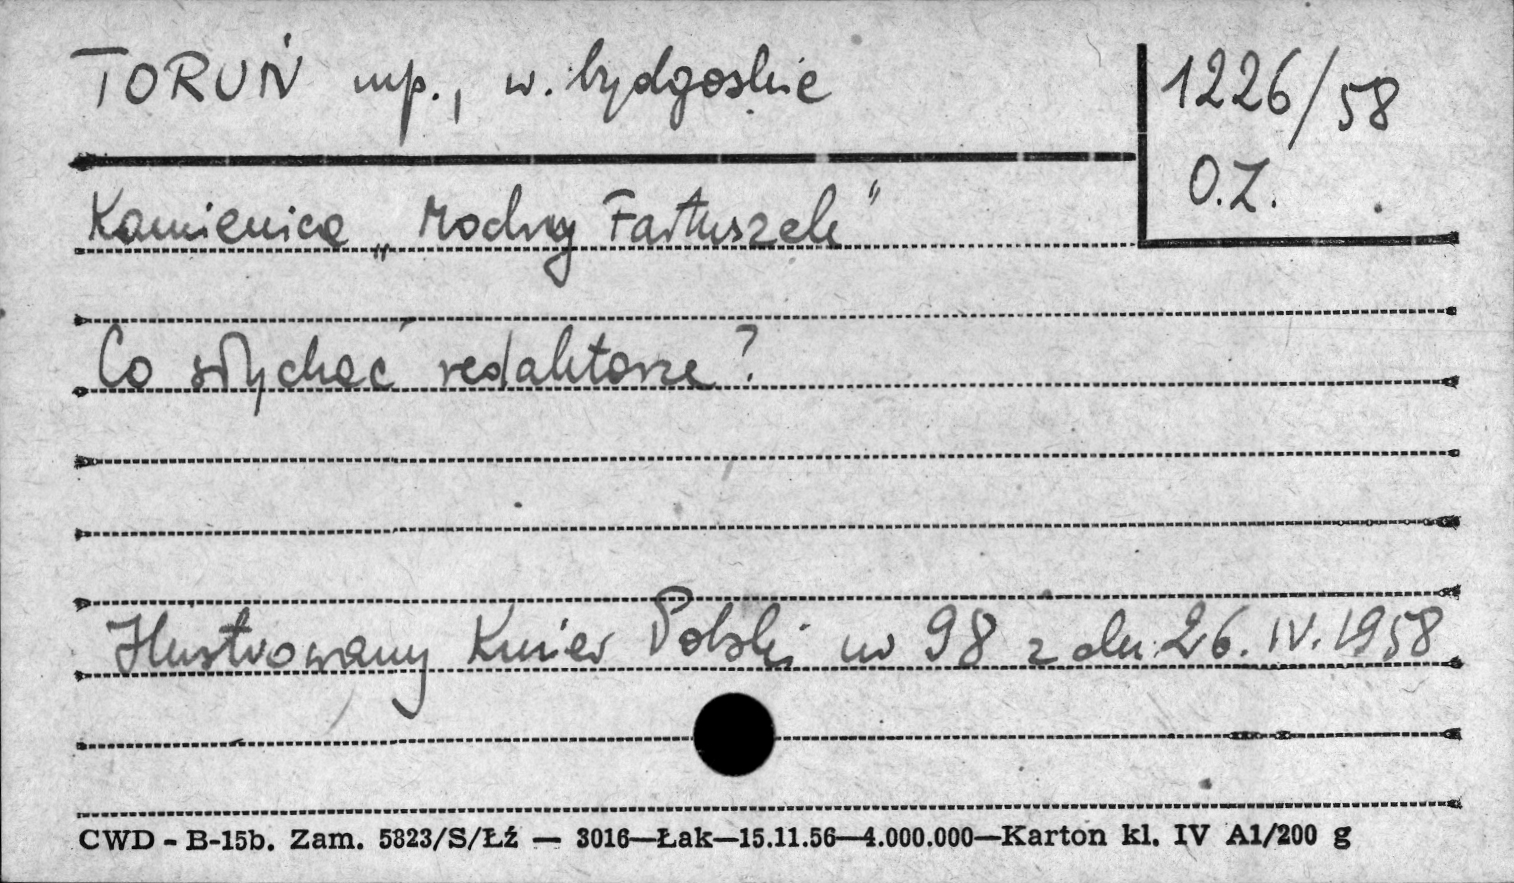 TORUŃ mp., w. bydgoskie
1226/58
O.Z.
Kamienica „Modny Fartuszek"
Co słychać redaktorze?
Ilustrowany Kurier Polski nr 98 z dn. 26.IV.1958
CWD - B-15b. Zam. 5823/S/Łź — 3016—Łak—15.11.56—4.000.000—Karton kl. IV A1/200 g